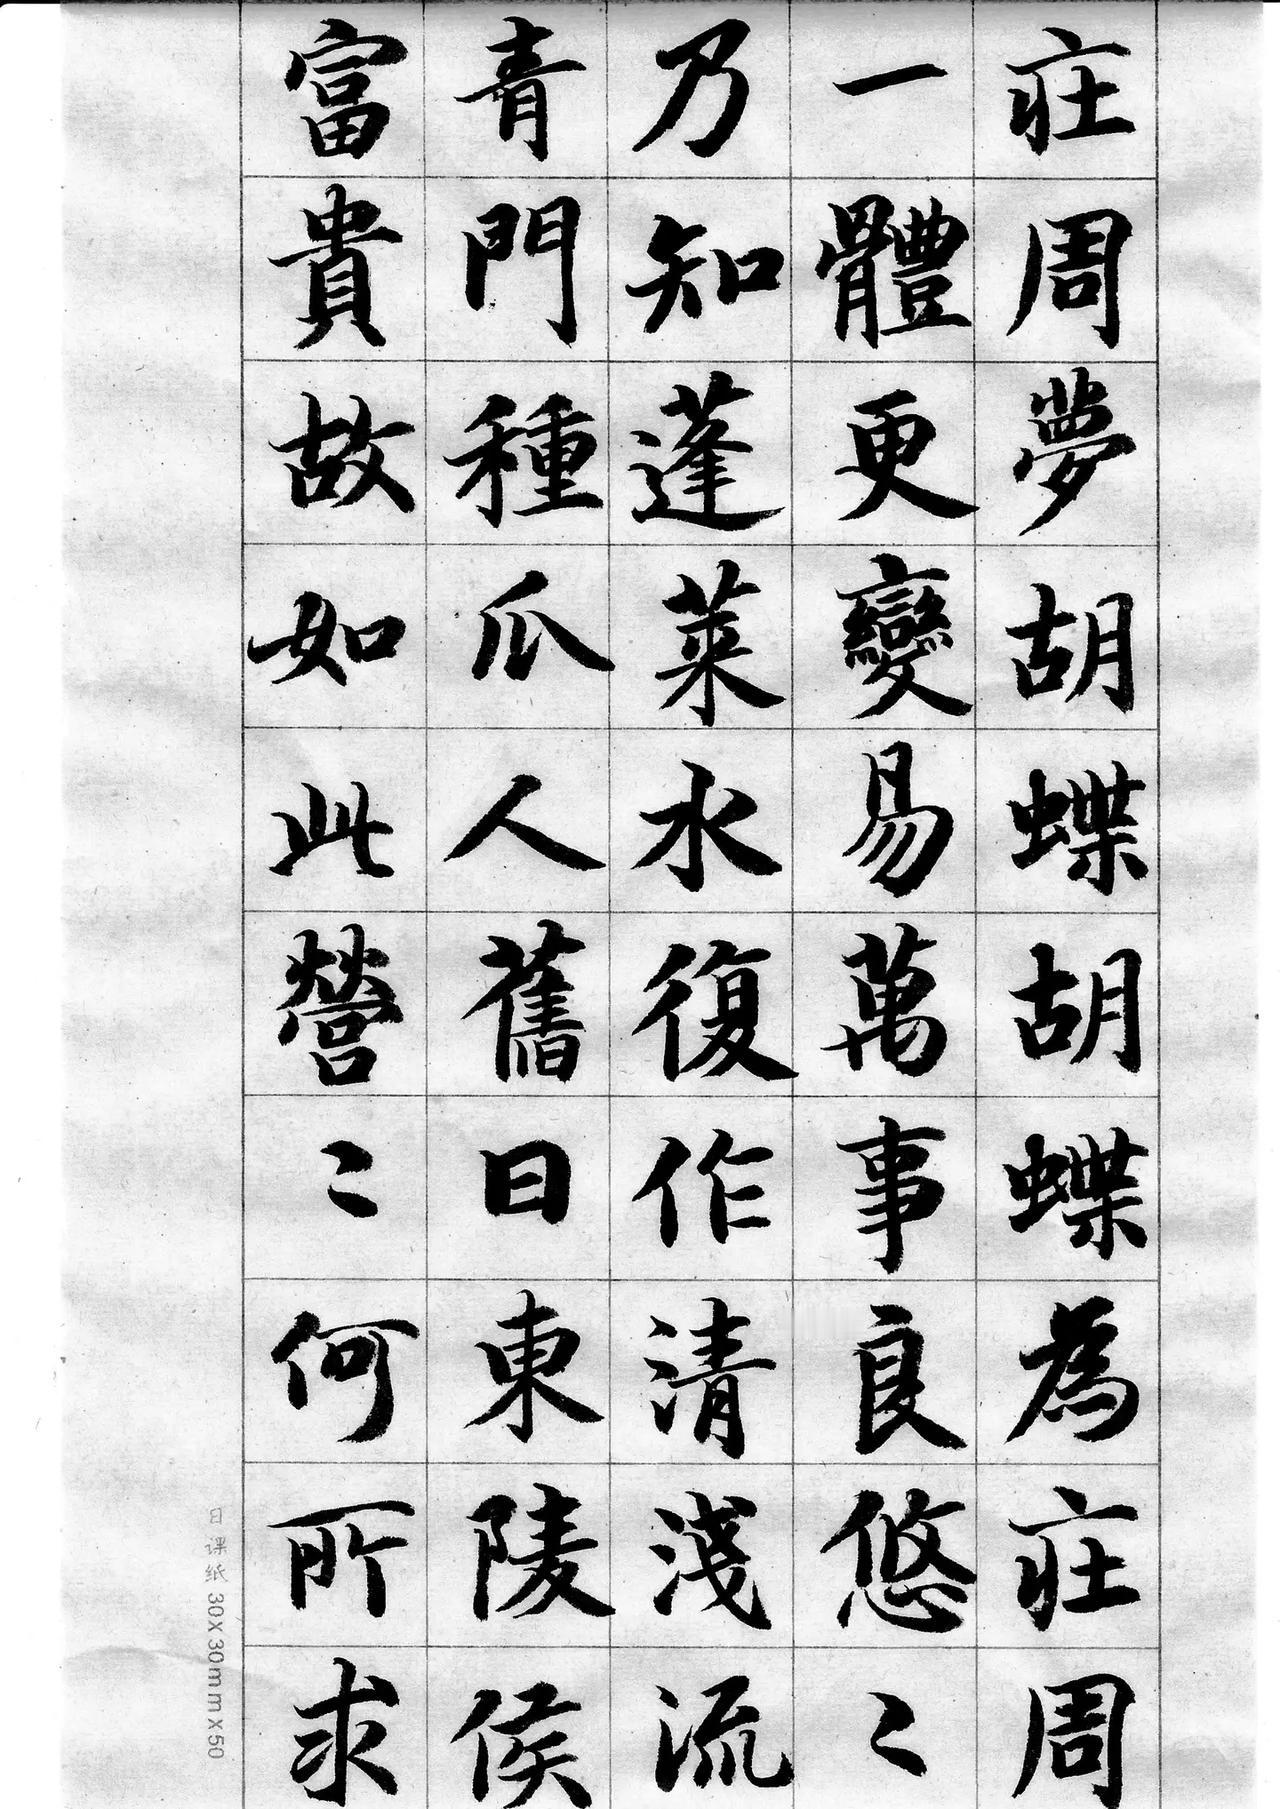 莊周夢胡蝶胡蝶為莊周
一體更變易萬事良悠〻
乃知蓬萊水復作清淺流
青門種瓜人舊日東陵侯
富貴故如此營〻何所求
日课纸 30x30mmx50